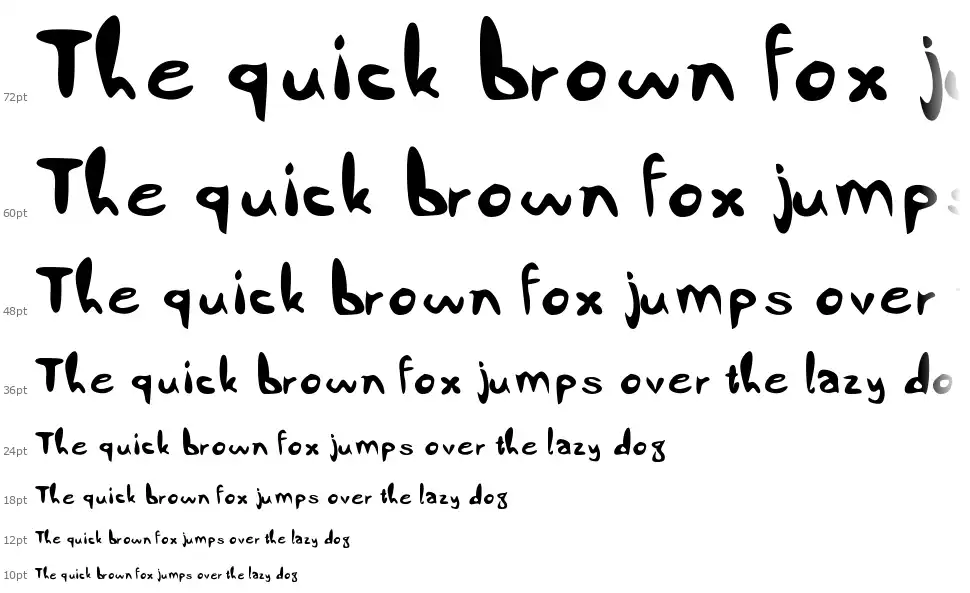 72pt The quick brown fox ju
60pt The quick brown fox jumps
48pt The quick brown fox jumps over
36pt The quick brown fox jumps over the lazy do
24pt The quick brown fox jumps over the lazy dog
18pt The quick brown fox jumps over the lazy dog
12pt The quick brown fox jumps over the lazy dog
10pt The quick brown fox jumps over the lazy dog